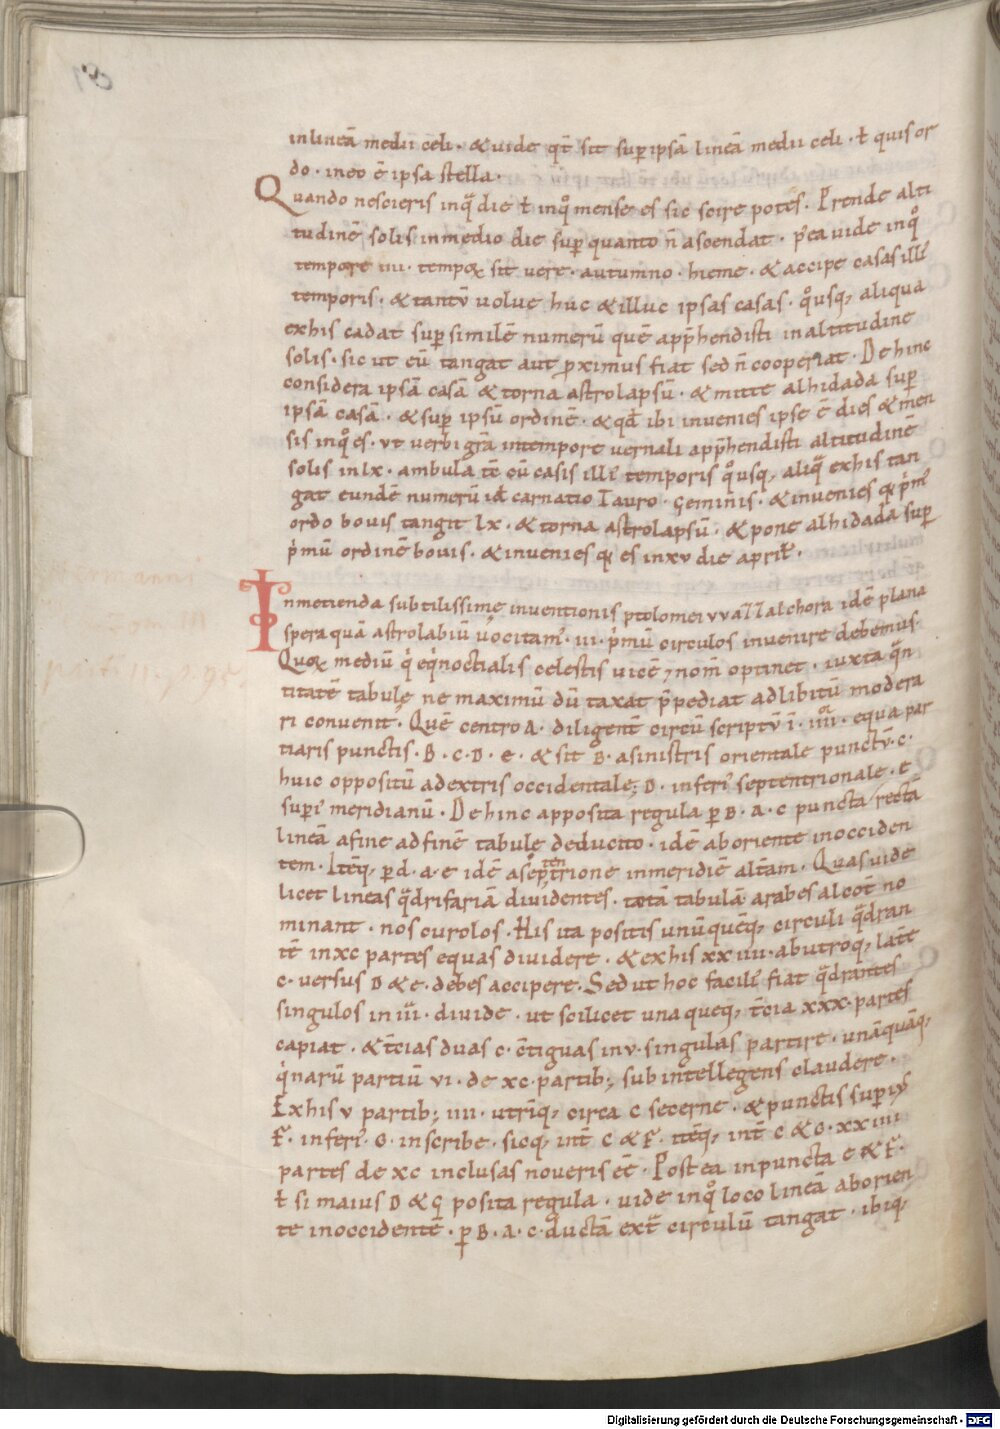 inlineā medii celi · & uide qt̄ sit sup ipsā lineā medii celi · ł quis or
do · in eo ē ipsa stella ·
Quando nescieris inq̄ die ł inq̊ mense es sic scire potes · Prende alti
tudinē solis in medio die sup quanto n̄ ascendat · p̄ea uide inq̊
tempore iiii · tempoꝝ sit uere · autumno · hieme · & accipe casas illi᷒
temporis · & tantū uolue huc & illuc ipsas casas · q̊usq; aliqua
ex his cadat sup similē numerū quē app̄hendisti in altitudine
solis · sic ut eū tangat aut ꝓximus fiat sed n̄ cooperiat · Dehinc
considera ipsā casā & torna astrolapsū · & mitte alhidada sup
ipsā casā · & sup ipsū ordinē · & qđ ibi inuenies ipse ē dies & men
sis inq̊ es · ut uerbi grā intempore uernali app̄hendisti altitudinē
solis in lx · ambula tē cū casis illi᷒ temporis q̊usq; aliq̄ ex his tan
gat eundē numerū id carnatio Tauro · Geminis · & inuenies qꝫ p̄m᷒
ordo bouis tangit lx · & torna astrolapsū · & pone alhidada sup
p̄mū ordinē bouis · & inuenies qꝫ es in xv die april̄ ·
Inmetienda subtilissime inuentionis ptolomei vvallalchora idē plana
spera quā astrolabiū uocitam᷒ · iii · p̄mū circulos inuenire debemus ·
Quoꝝ mediū q̇ eq̇noctialis celestis uicē ⁊ nom̄ optinet · iuxta q̄n
titatē tabulę ne maximū dū taxat p̄pediat adlibitū modera
ri conuenit · Quē centro A · diligent̄ circū scriptū ī · iiii᷒ · equa par
tiaris punctis · B · C · D · E · & sit B · asinistris orientale punctū · C ·
huic oppositū adextris occidentale; D · inferi᷒ septentrionale · E
superi᷒ meridianū · Dehinc apposita regula ꝑ B · A · C puncta / rectā
lineā afine adfinē tabulę deducito · idē aboriente inocciden
tem · Itēq; ꝑ d · a · e idē aseptentrione inmeridiē altam · Quas uide
licet lineas q̄drifariā diuidentes · totā tabulā arabes alcot̄ no
minant · nos curolos · His ita positis unūquēq; circuli q̄dran
tē in xc partes equas diuidere · & ex his xxiiii · abutroq; latē
c · uersus D & E · debes accipere · Sed ut hoc facili᷒ fiat q̄drantes
singulos in iii᷒ · diuide · ut scilicet una queq; t̄cia xxx · partes
capiat · & t̄cias duas c · c̄tiguas in v · singulas partire · unāquāq;
q̇narū partiū vi · de xc · partib; subintellegens claudere ·
Ex his v partib; iiii · utrīq; circa c secerne · & punctis superi᷒
F · inferi᷒ · G · inscribe · sicq; int̄ C & F · itēq; int̄ C & G · xxiiii
partes de xc inclusas noueris eē · Postea inpuncta E & F ·
ł si maius D & G posita regula · uide inq̊ loco lineā aborien
te inoccidentē · ꝑ B · A · C · ductā ext̄ circulū tangat · ibiq;
Digitalisierung gefördert durch die Deutsche Forschungsgemeinschaft - DFG